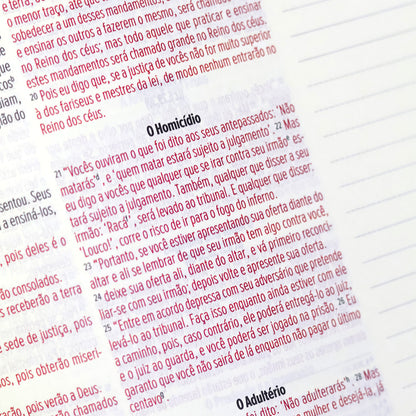 e terra, o menor traço, até que
sobedecer a um desses mandamentos,
e ensinar os outros a fazerem o mesmo, será chamado
no Reino dos céus, mas todo aquele que praticar e ensinar
estes mandamentos será chamado grande no Reino dos céus.
20 Pois eu digo que, se a justiça de vocês não for muito superior
à dos fariseus e mestres da lei, de modo nenhum entrarão no
Reino dos céus.
O Homicídio
21 “Vocês ouviram o que foi dito aos seus antepassados: ‘Não
matarás’, e ‘quem matar estará sujeito a julgamento’. 22 Mas
eu digo a vocês que qualquer que se irar contra seu irmão es-
tará sujeito a julgamento. Também, qualquer que disser a seu
irmão: ‘Racá’, será levado ao tribunal. E qualquer que disser:
‘Louco!’, corre o risco de ir para o fogo do inferno.
23 “Portanto, se você estiver apresentando sua oferta diante do
altar e ali se lembrar de que seu irmão tem algo contra você,
24 deixe sua oferta ali, diante do altar, e vá primeiro reconci-
liar-se com seu irmão; depois volte e apresente sua oferta.
25 “Entre em acordo depressa com seu adversário que pretende
levá-lo ao tribunal. Faça isso enquanto ainda estiver com ele
a caminho, pois, caso contrário, ele poderá entregá-lo ao juiz,
e o juiz ao guarda, e você poderá ser jogado na prisão. 26 Eu
garanto que você não sairá de lá enquanto não pagar o último
centavo.
O Adultério
foi dito: ‘Não adulterarás’. 28 Mas
a mulher e desejá-la, já
sentou. Seus
a ensiná-los,
pois deles é o
ão consolados.
s receberão a terra
e sede de justiça, pois
sos, pois obterão miseri-
ração, pois verão a Deus.
serão chamados